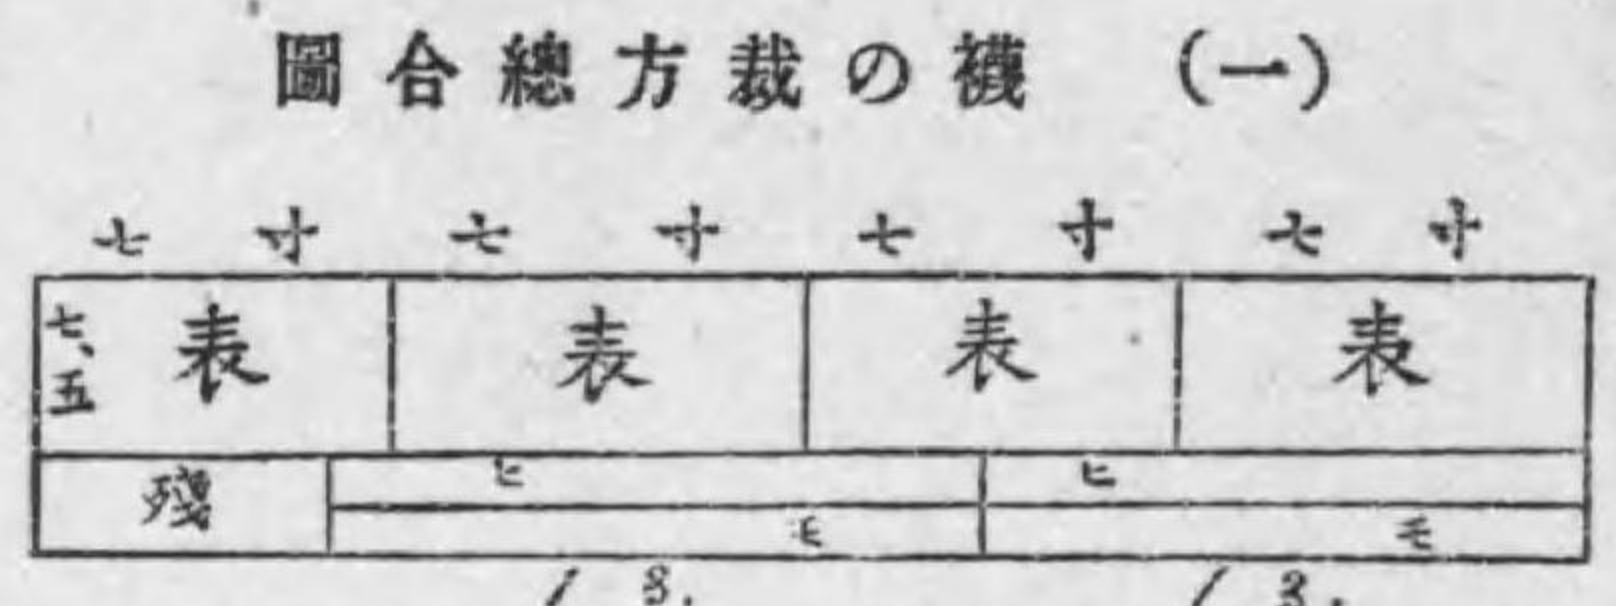 （一） 襪の裁方總合圖
七寸 七寸 七寸 七寸
七、五 表 表 表 表
殘 ヒ ヒ
モ モ
1 3. 1 3.